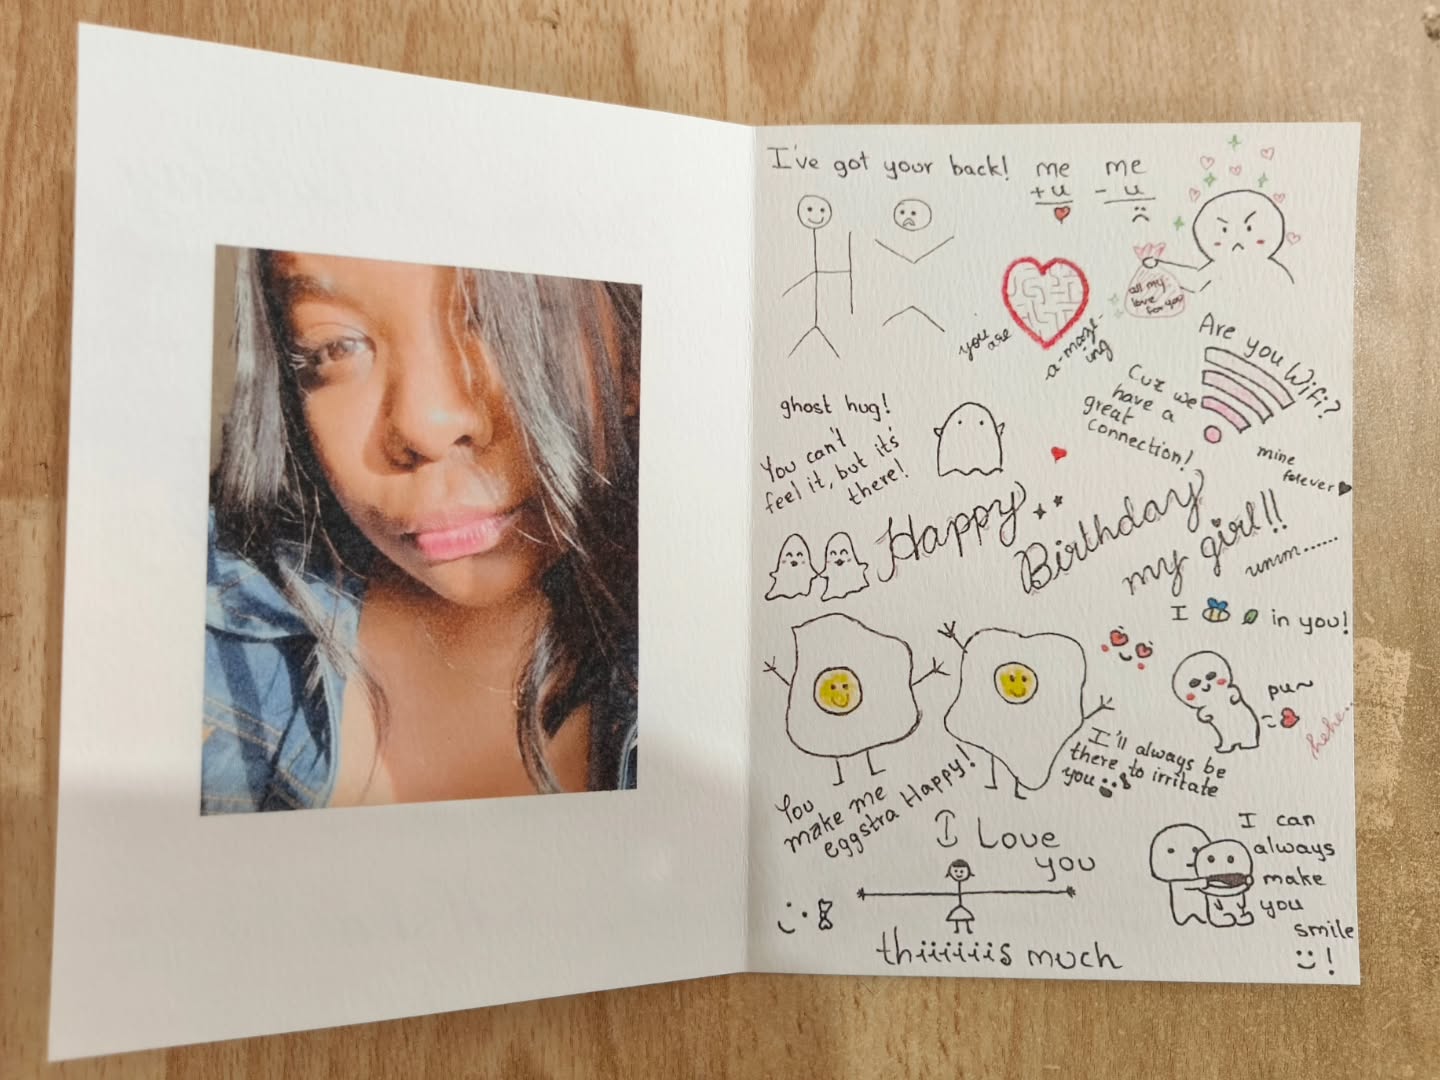 I've got your back!
me
+ u
me
- u
all my
love
for you
you are
a-maze-
ing
Are you Wifi?
Cuz we
have a
great
connection!
ghost hug!
You can't
feel it, but its'
there!
mine
forever
Happy
Birthday
my girl!!
umm......
I in you!
pu~
hehe...
I'll always be
there to irritate
you
You
make me
eggstra Happy!
I Love
you
thiiiiiis much
I can
always
make
you
smile
!